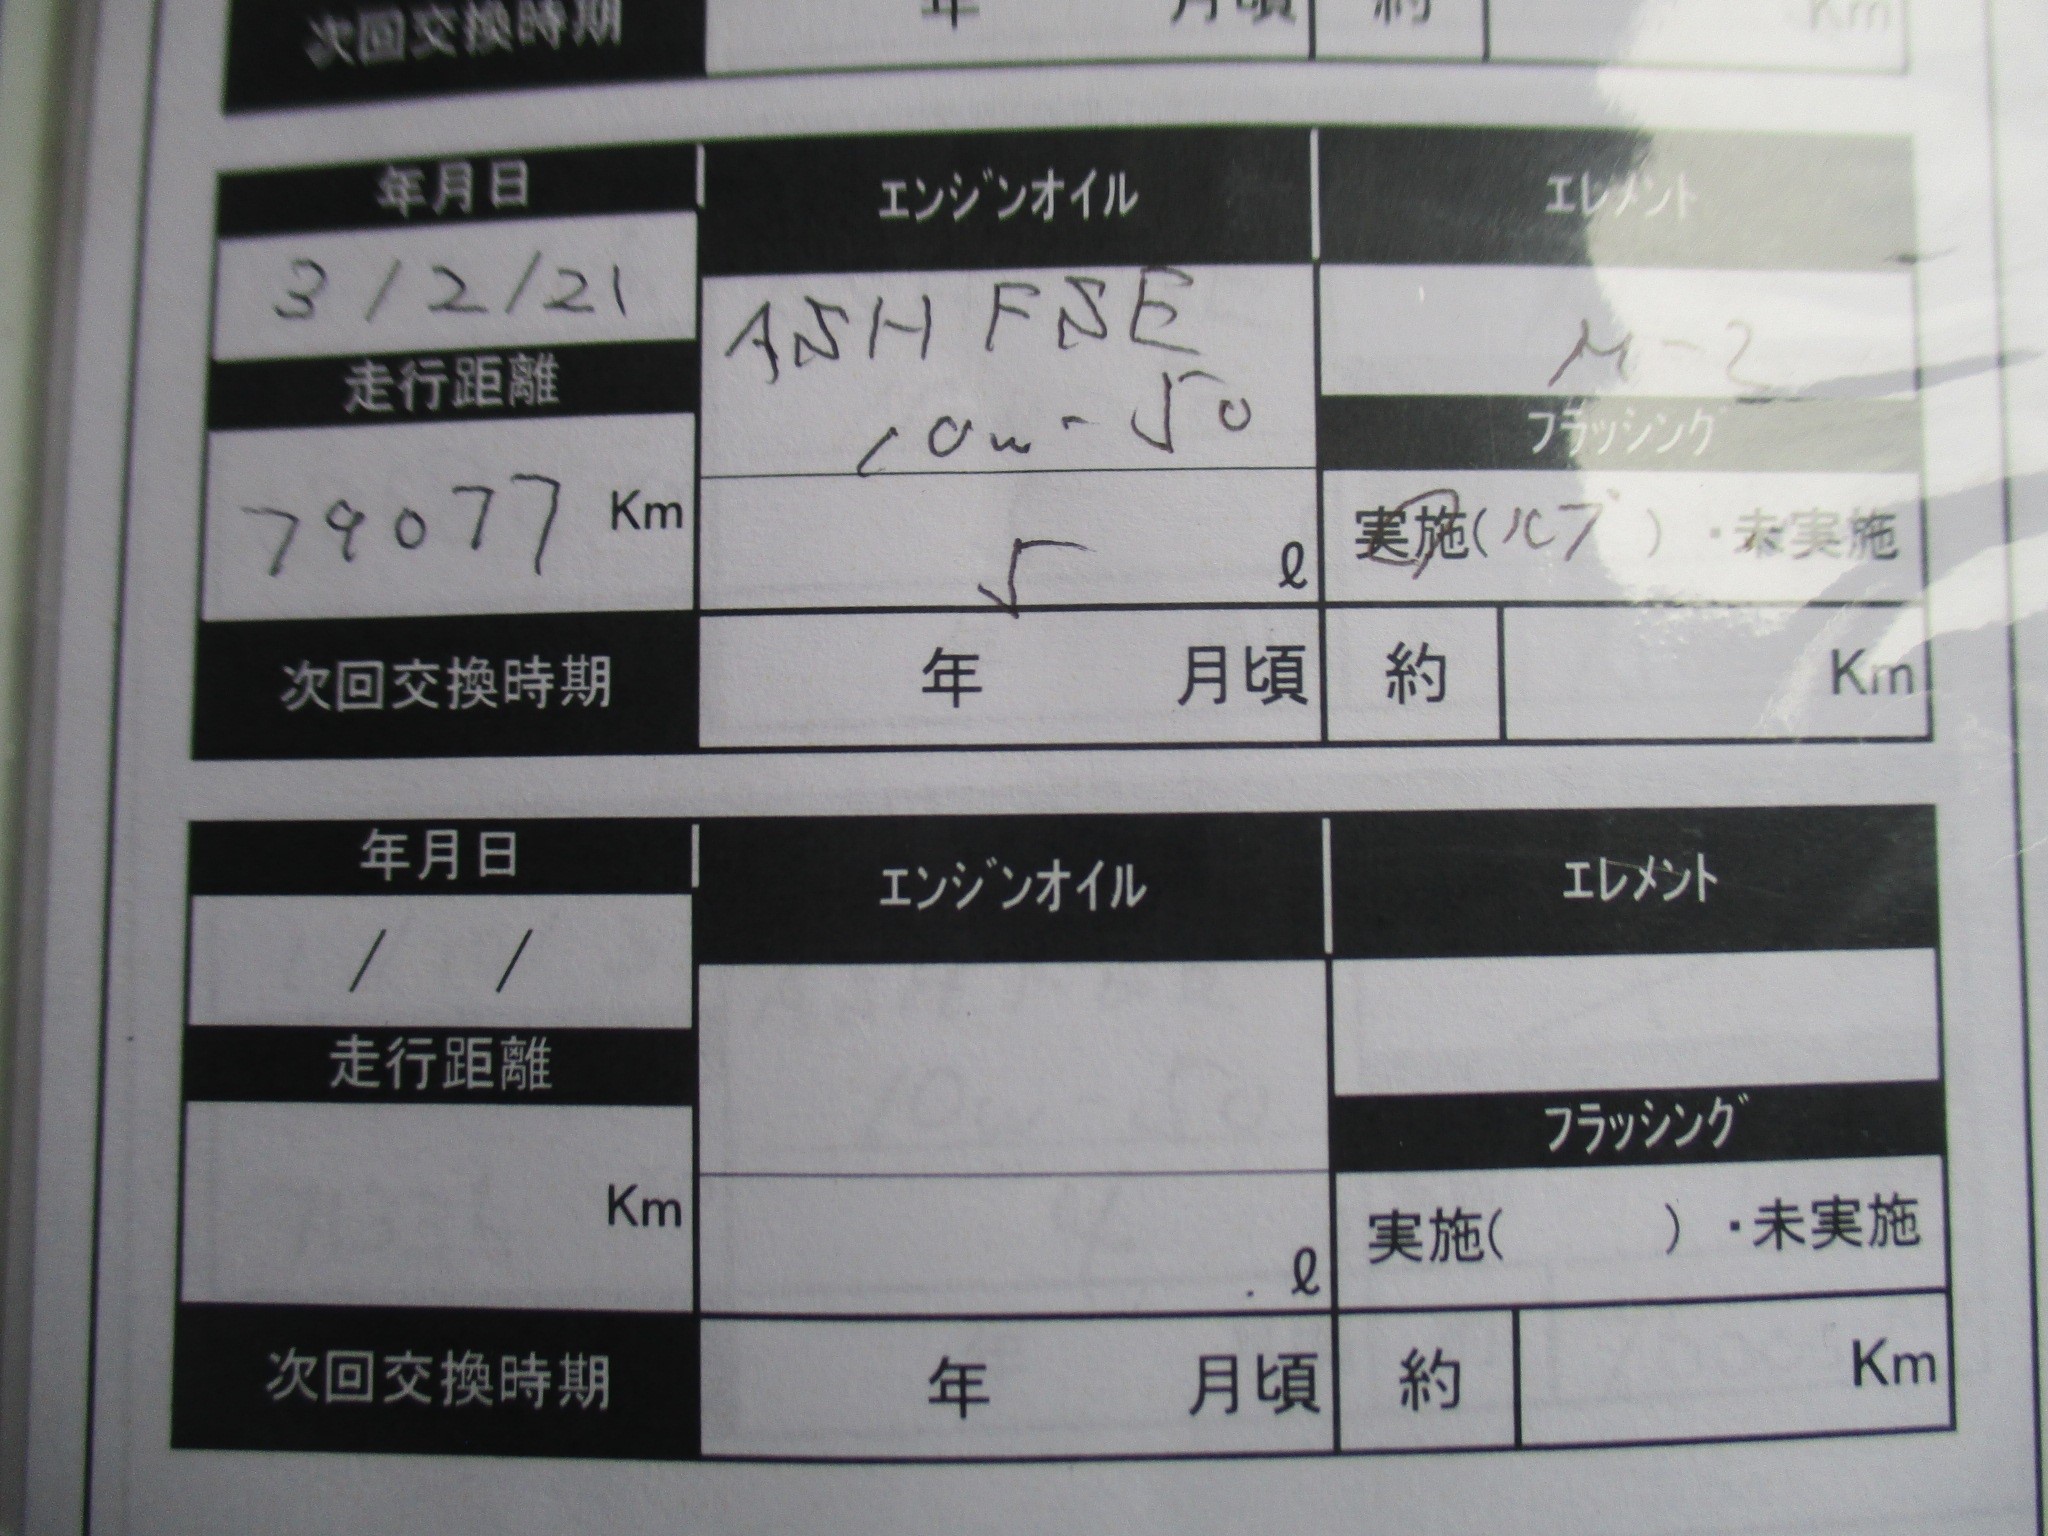 次回交換時期 年 月頃 約 Km
年月日 エンジンオイル エレメント
3/2/21 ASH FSE M-2
走行距離 10w-50 フラッシング
79077 Km 5 ℓ 実施( ) ・未実施
次回交換時期 年 月頃 約 Km
年月日 エンジンオイル エレメント
/ /
走行距離 フラッシング
Km . ℓ 実施( ) ・未実施
次回交換時期 年 月頃 約 Km